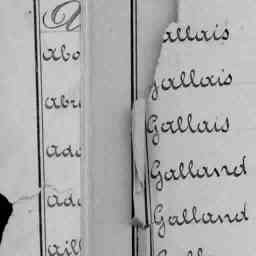 A
abo
abr
ado
ado
aill
allais
Gallais
Gallais
Galland
Galland